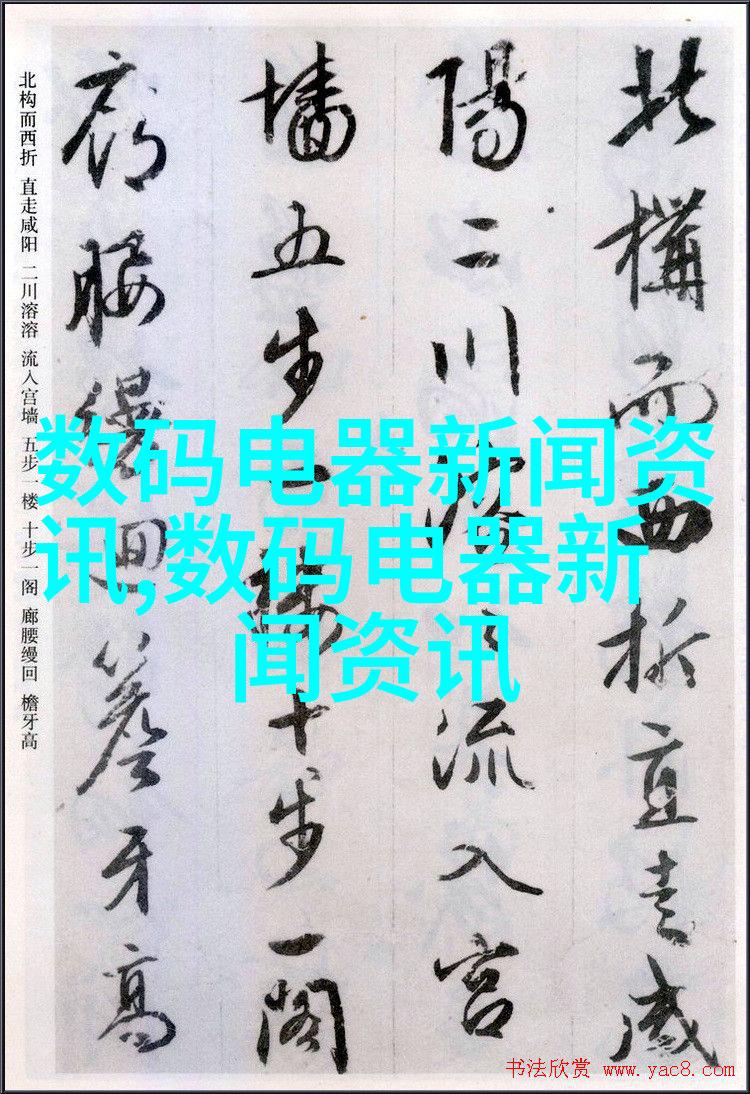 北構而西折直走咸
陽二川溶〻流入宫
墙五步一楼十步一阁
廊腰缦迴簷牙高
北构而西折 直走咸阳 二川溶溶 流入宫墙 五步一楼 十步一阁 廊腰缦回 檐牙高
数码电器新闻资
讯,数码电器新
闻资讯
书法欣赏 www.yac8.com